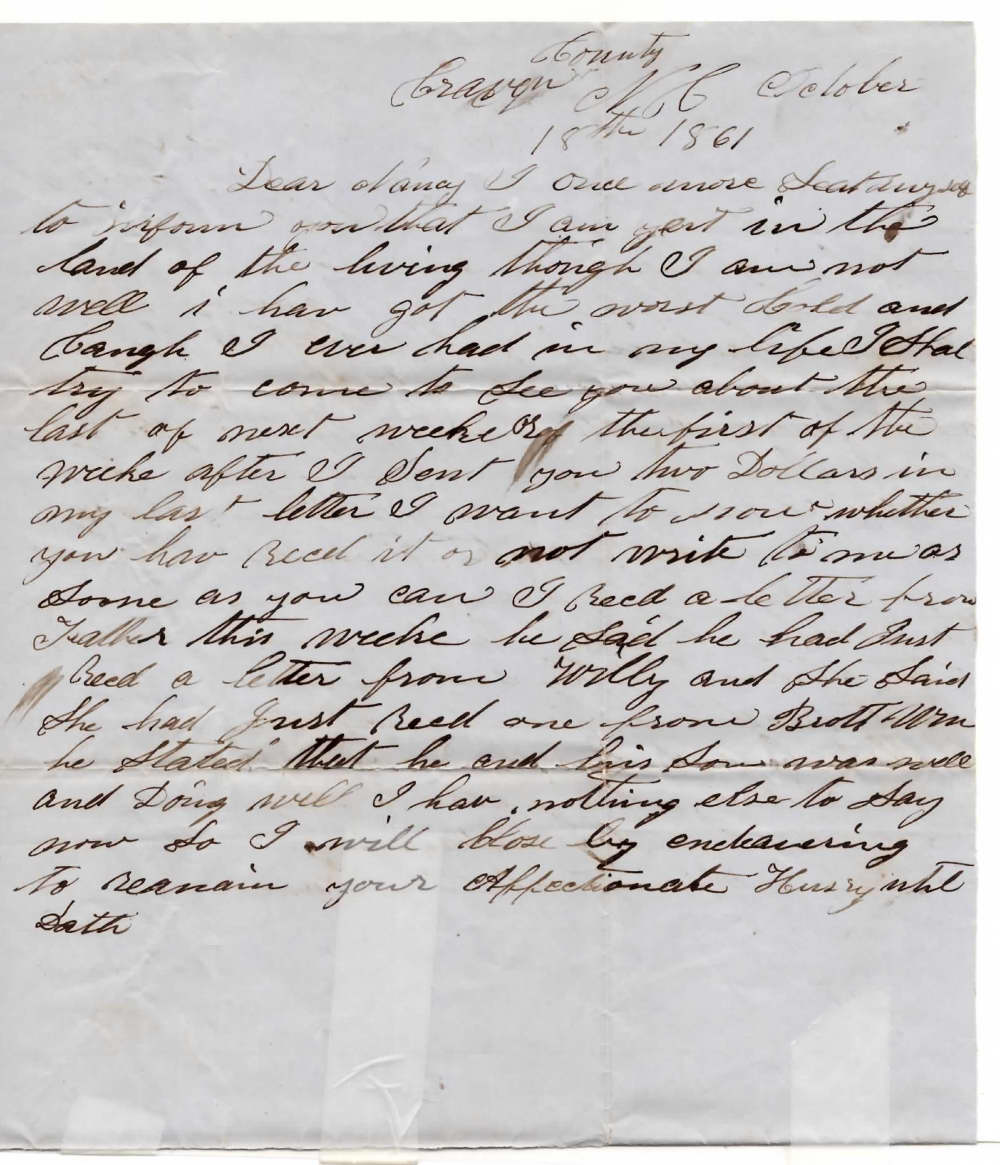 County
Craven N C October
18th 1861
Dear Nancy I once more Seat myself
to inform you that I am yet in the
land of the living though I am not
well i hav got the worst Cold and
Caugh I ever had in my life I Shal
try to come to See you about the
last of next weeke or the first of the
weeke after I Sent you two Dollars in
my last letter I want to now whether
you hav Recd it or not write to me as
Some as you can I Recd a letter from
Father this weeke he Said he had Just
Recd a letter from Willy and She Said
She had Just Recd one from Brott Wm
he Stated that he and his Son was well
and Doing well I hav nothing else to Say
now So I will Close by endeavering
to reamain your Affectionate until
Dath